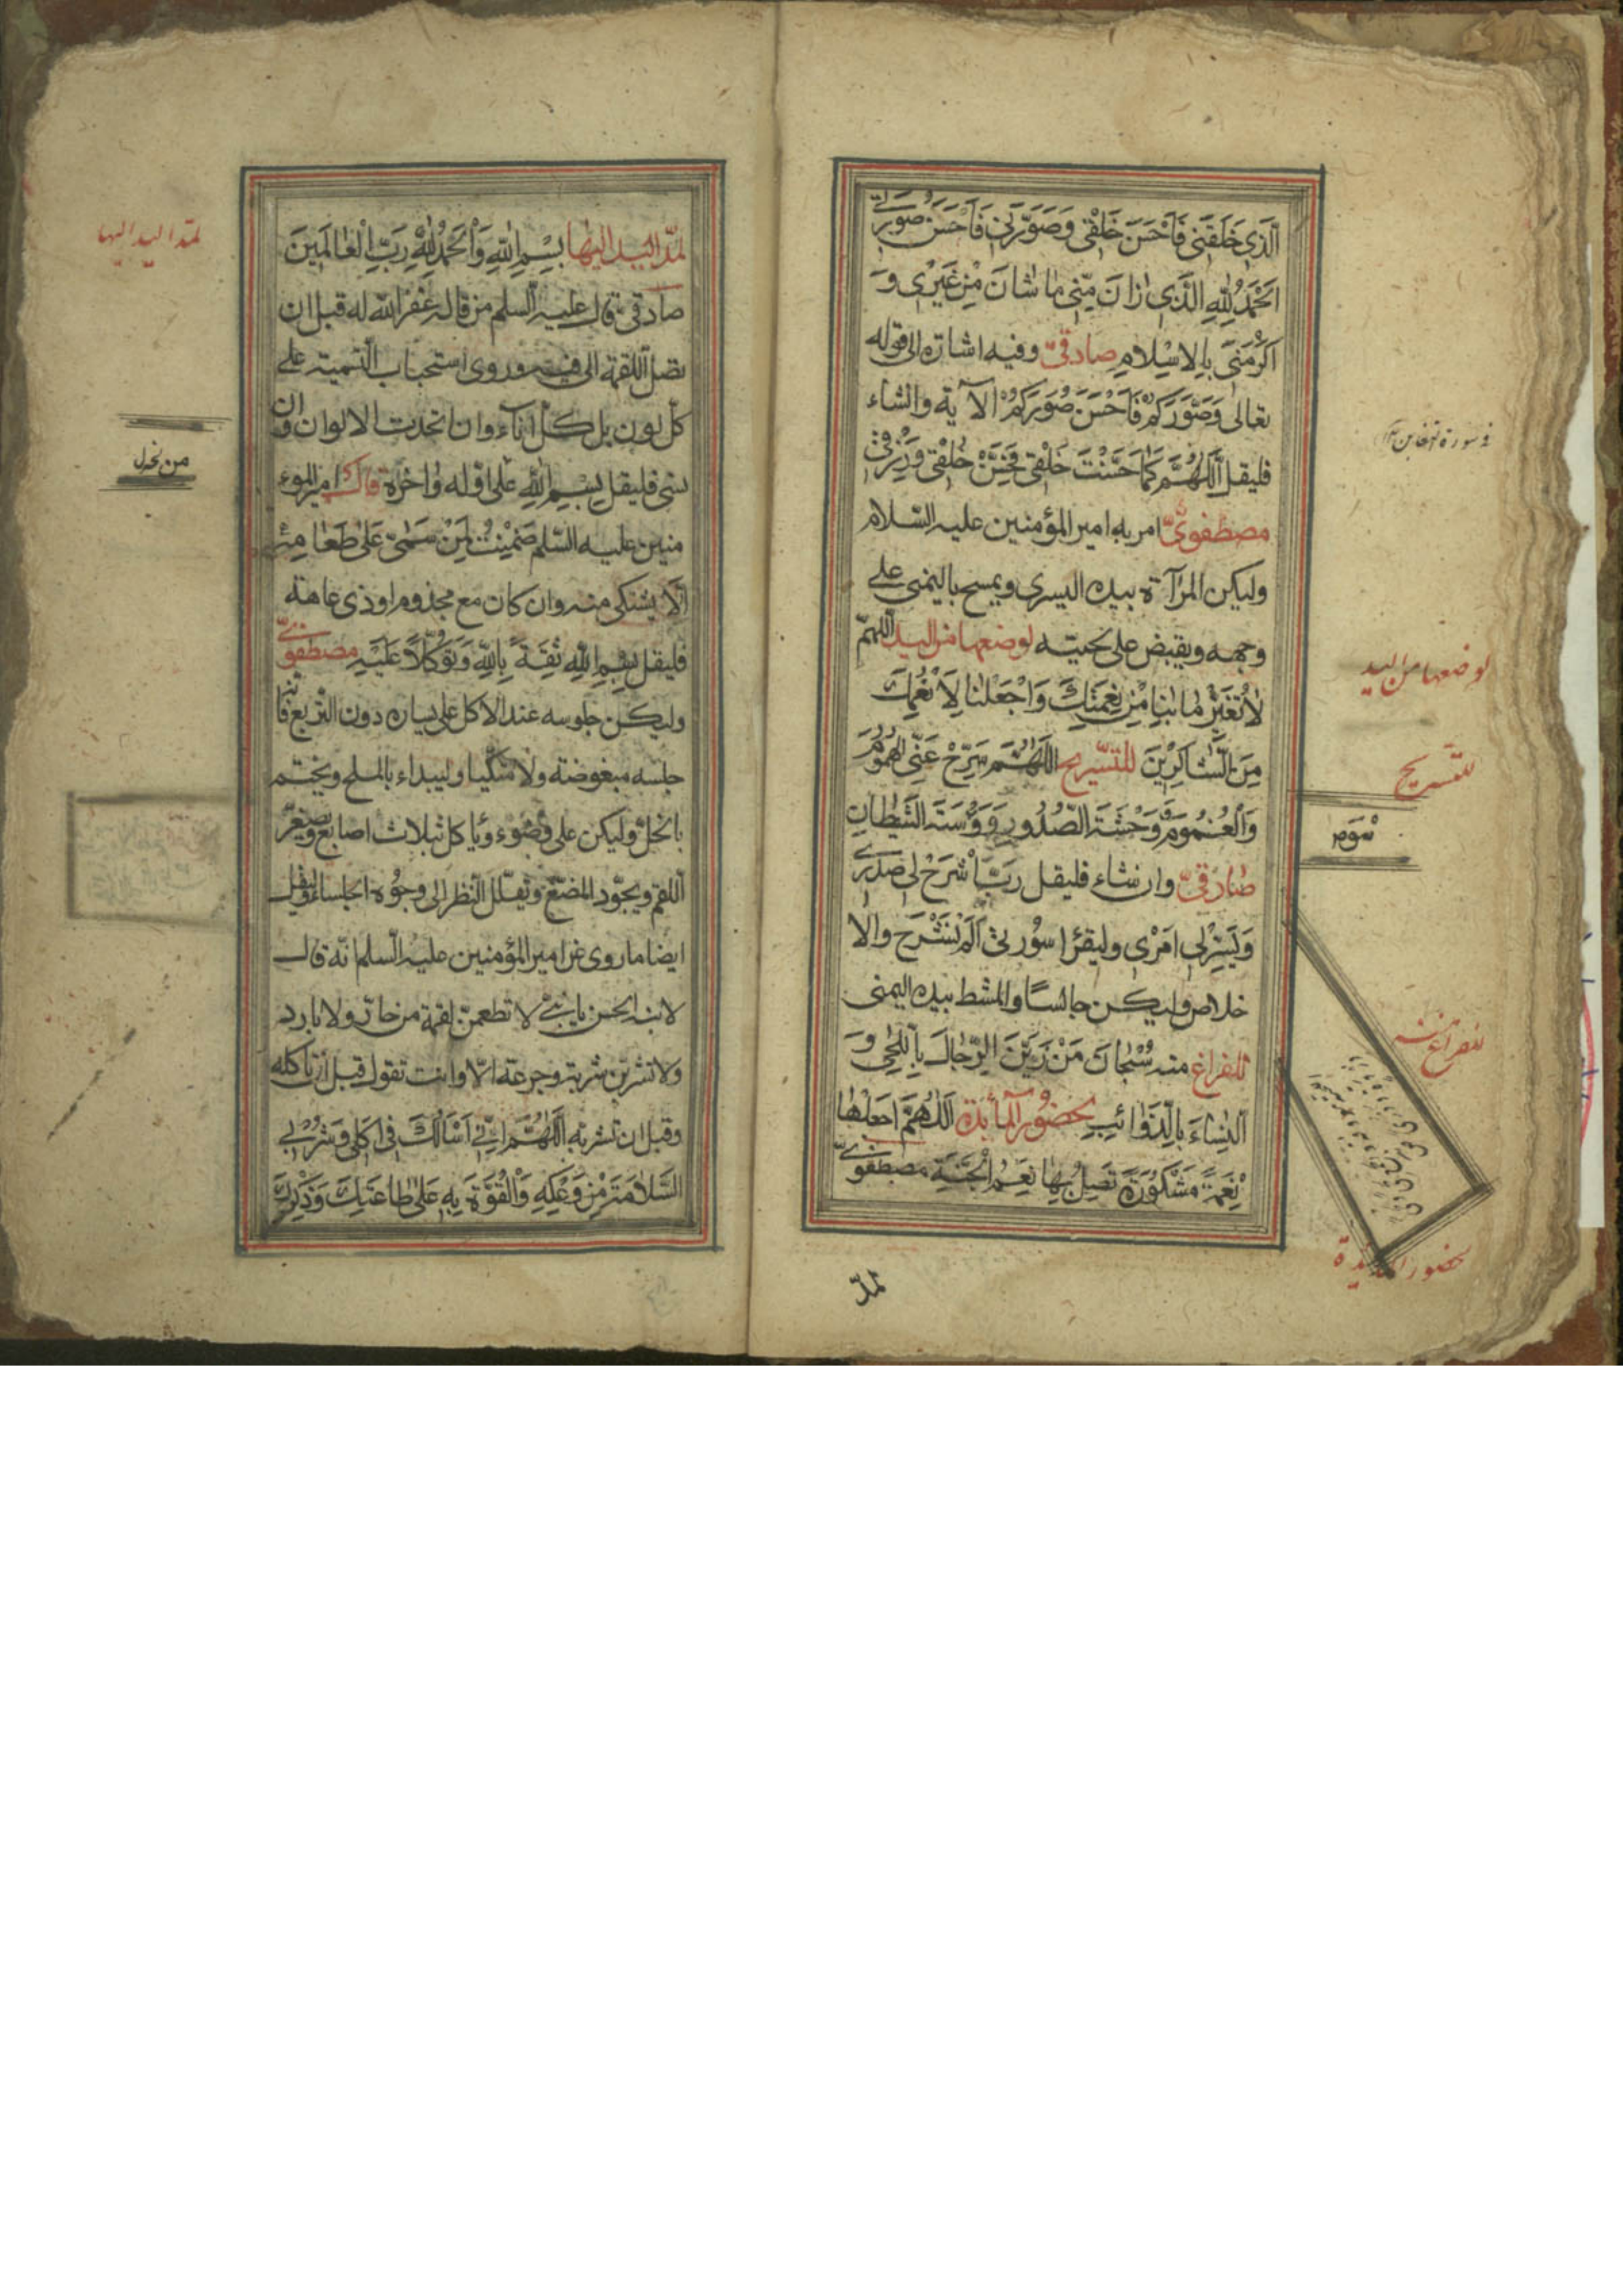 الَّذِي خَلَقَنِي فَاَحْسَنَ خَلْقِي وَصَوَّرَنِي فَاَحْسَنَ صُورَتِي
اَلْحَمْدُ لِلّٰهِ الَّذِي زَانَ مِنِّي مَا شَانَ مِنْ غَيْرِي وَ
اَكْرَمَنِي بِالْاِسْلَامِ صادقيّ وفيه اشارة الى قوله
تعالى وَصَوَّرَكُمْ فَاَحْسَنَ صُوَرَكُمْ الآية وان شاء
فليقل اَللّٰهُمَّ كَمَا حَسَّنْتَ خَلْقِي فَحَسِّنْ خُلْقِي وَرِزْقِي
مصطفويّ امر به امير المؤمنين عليه السلام
وليكن المرآة بيده اليسرى ويمسح باليمنى على
وجهه ويقبض على لحيته لوضعها من اليد اللهمّ
لَا تُغَيِّرْ مَا بِنَا مِنْ نِعْمَتِكَ وَاجْعَلْنَا لِاَنْعُمِكَ
مِنَ الشَّاكِرِينَ للتسريح اَللّٰهُمَّ سَرِّحْ عَنِّي الْهُمُومَ
وَالْغُمُومَ وَوَحْشَةَ الصُّدُورِ وَوَسْوَسَةَ الشَّيْطَانِ
صادقيّ وان شاء فليقل رَبِّ اشْرَحْ لِي صَدْرِي
وَيَسِّرْ لِي اَمْرِي وليقرأ سورتي اَلَمْ نَشْرَحْ والا
خلاص وليكن جالسًا والمشط بيده اليمنى
للفراغ منه سُبْحَانَ مَنْ زَيَّنَ الرِّجَالَ بِاللِّحَى وَ
النِّسَاءَ بِالذَّوَائِبِ لحضور المائدة اَللّٰهُمَّ اجْعَلْهَا
نِعْمَةً مَشْكُورَةً تَصِلُ بِهَا نَعِيمَ الْجَنَّةِ مصطفويّ
لمدّ
في سورة التغابن
لوضعها من اليد
للتسريح
للفراغ منه
لحضور المائدة
لمدّ اليد اليها بِسْمِ اللّٰهِ وَالْحَمْدُ لِلّٰهِ رَبِّ الْعَالَمِينَ
صادقيّ قال عليه السلم من قاله غفر الله له قبل ان
تصل اللقمة الى فيه وروى استحباب التسمية على
كلّ لون بل كلّ اناء وان اتحدت الالوان وان
نسي فليقل بِسْمِ اللّٰهِ عَلَى اَوَّلِهِ وَاٰخِرِهِ قال امير المؤ
منين عليه السلم ضَمِنْتُ لِمَنْ سَمَّى عَلَى طَعَامِهِ
اَلَّا يشتكي منه وان كان مع مجذوم او ذي عاهة
فليقل بِسْمِ اللّٰهِ ثِقَةً بِاللّٰهِ وَتَوَكُّلًا عَلَيْهِ مصطفويّ
وليكن جلوسه عند الاكل على يساره دون التربّع فانّها
جلسه مبغوضة ولا متّكيا وليبداء بالملح ويختم
بالخلّ وليكن على وضوء وياكل بثلاث اصابع ويصغّر
اللقم ويجوّد المضغ ويقلّل النظر الى وجوه الجلساء وليقل
ايضا ما روى عن امير المؤمنين عليه السلم انّه قال
لابنه الحسن يا بنيّ لا تطعمنّ لقمة من حارّ ولا بارد
ولا تشربنّ شربة وجرعة الّا وانت تقول قبل ان تاكله
وقبل ان تشربه اَللّٰهُمَّ اِنِّي اَسْاَلُكَ فِي اَكْلِي وَشُرْبِي
السَّلَامَةَ مِنْ وَعْكِهِ وَالْقُوَّةَ بِهِ عَلَى طَاعَتِكَ وَذِكْرِكَ
لمدّ اليد اليها